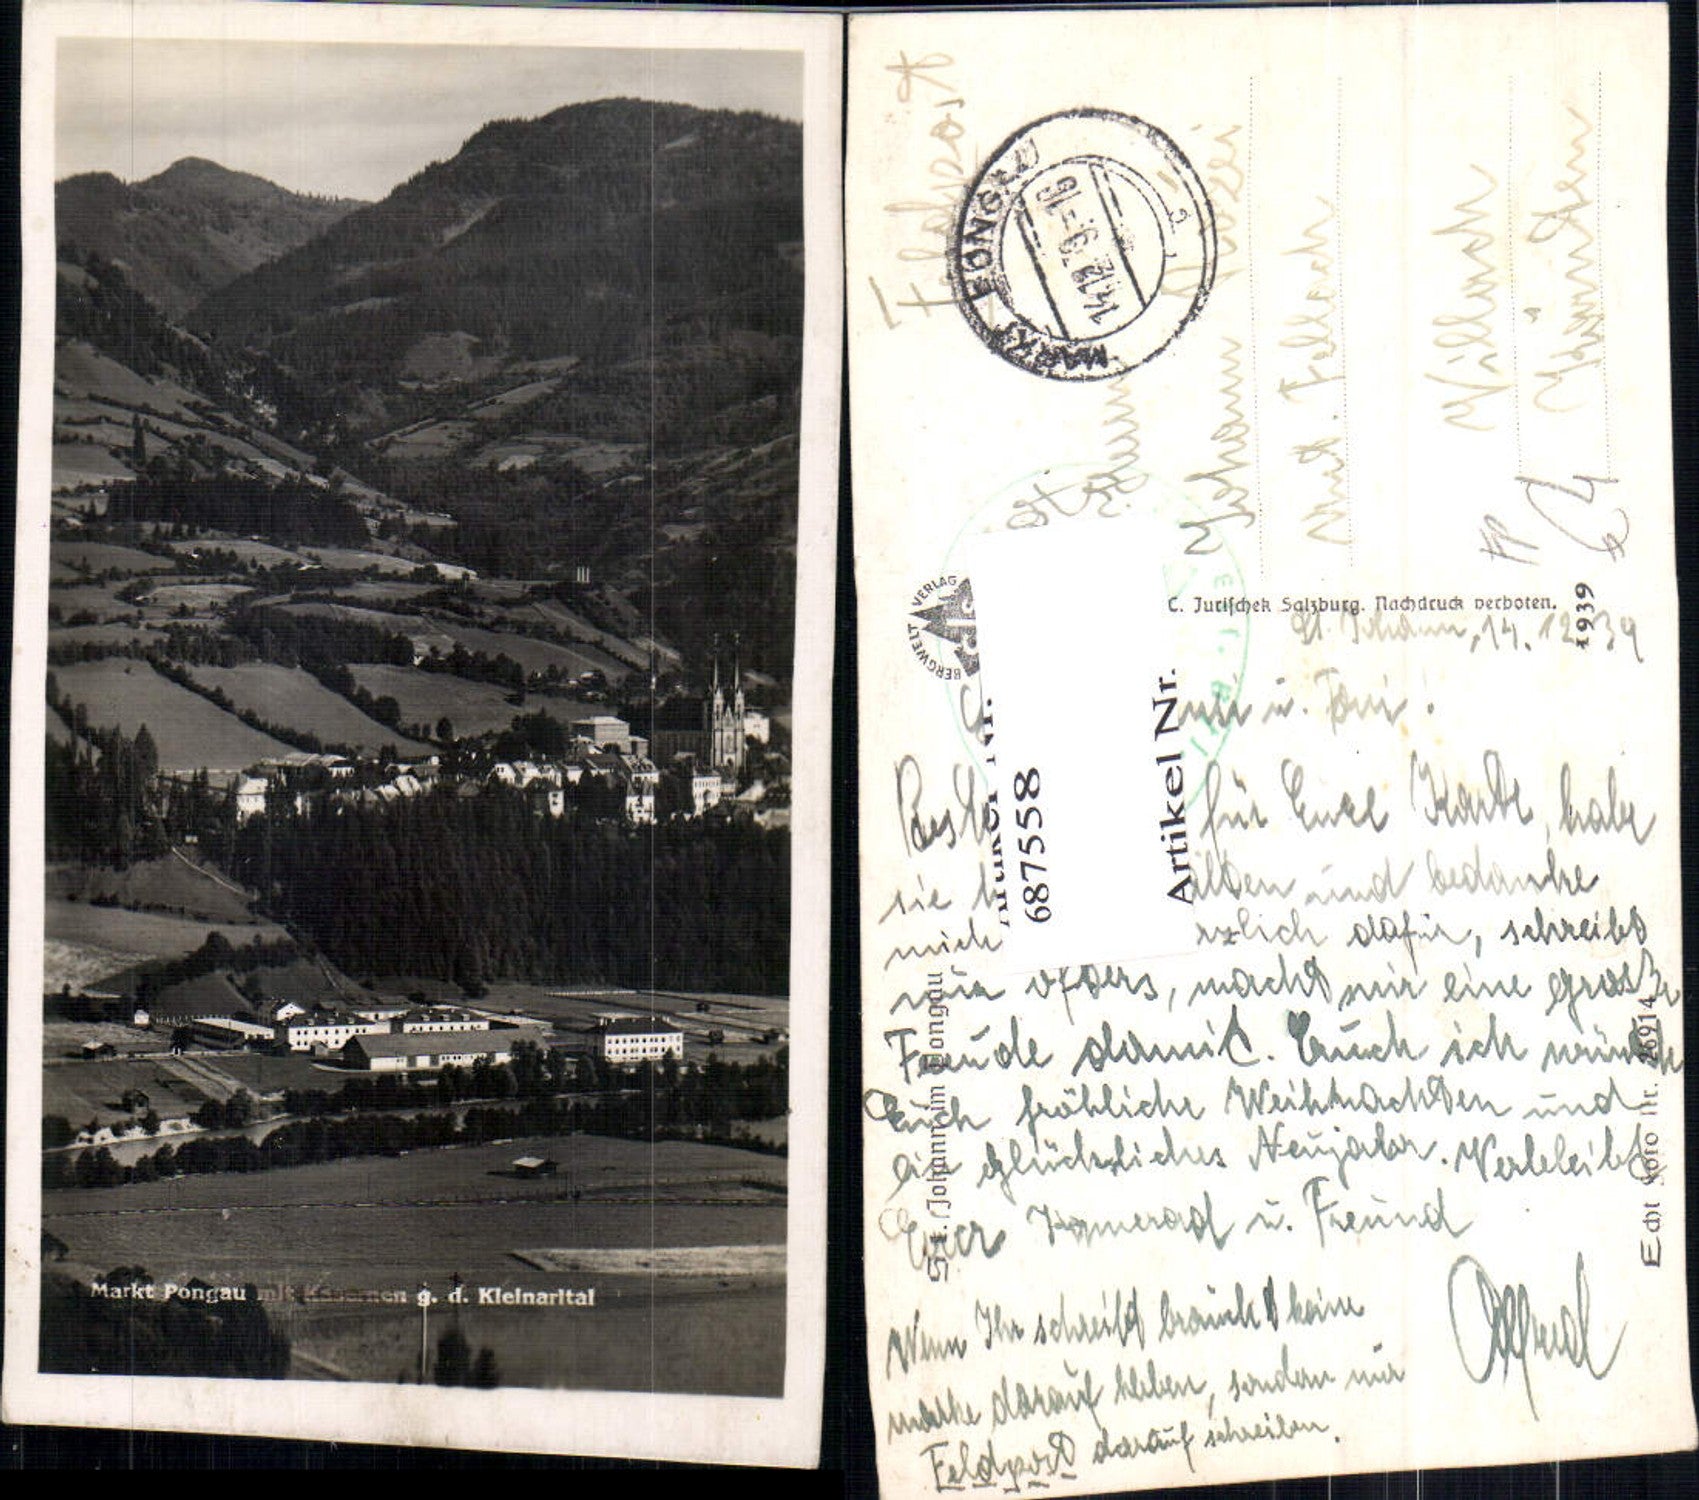 Markt Pongau mit Kasernen g. d. Kleinarltal
Feldpost
MARKT PONGAU
14.12.39-16
a
Johann
Villach
Kärnten
BERGWELT VERLAG
C. Jurischek Salzburg. Nachdruck verboten.
1939
St. Johann, 14. 12. 39
u. Toni.
für Eure Karte, habe
sie und bedanke
mich dafür, schreibt
nur öfters, macht mir eine große
Freude damit. Auch ich wünsche
Euch fröhliche Weihnachten und
ein glückliches Neujahr. Verbleibt
Euer Kamerad u. Freund
Alfred
Wenn Ihr schreibt braucht keine
marke darauf kleben, sondern nur
Feldpost darauf schreiben.
St. Johann im Pongau
Echt Foto Nr. 26914
Artikel Nr.
6875558
Artikel Nr.